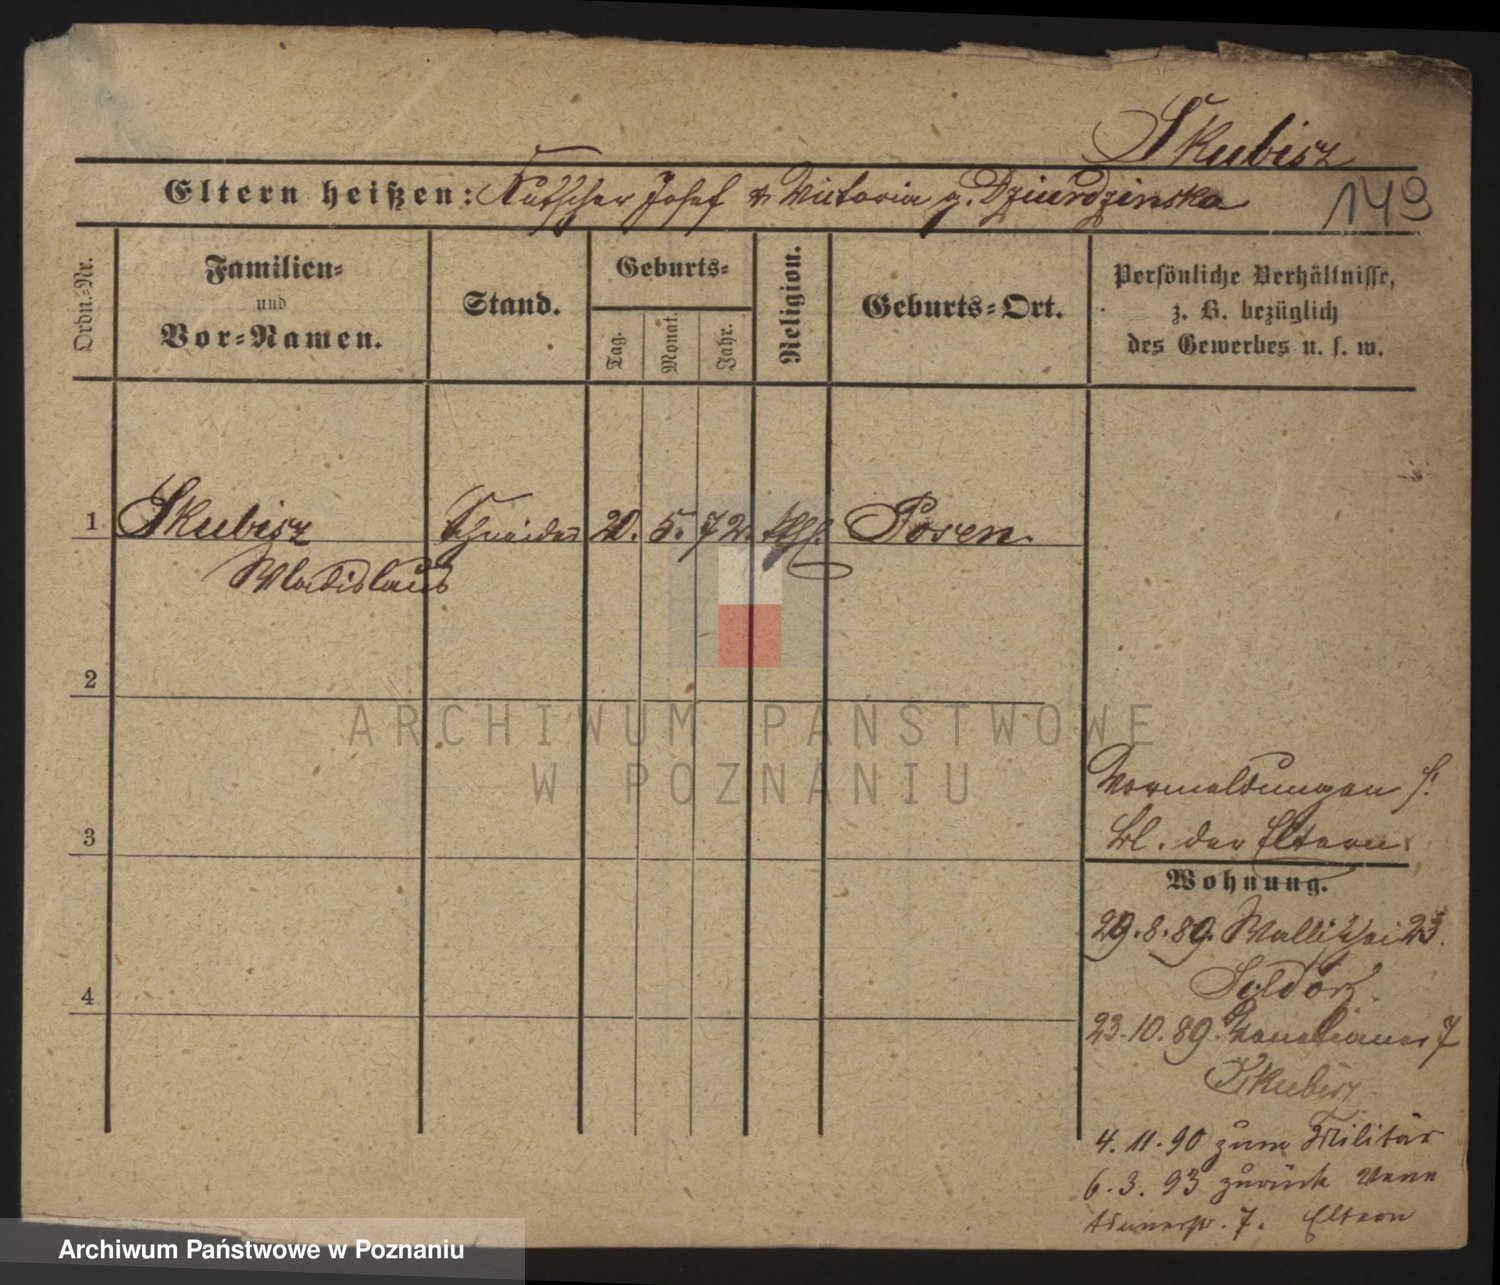 Skubisz
Eltern heißen: Kutscher Josef & Victoria g. Dziurdzinska
149
Ordn.-Nr.
Familien-
und
Vor-Namen.
Stand.
Geburts-
Tag.
Monat.
Jahr.
Religion.
Geburts-Ort.
Persönliche Verhältnisse,
z. B. bezüglich
des Gewerbes u. s. w.
1 Skubisz Schneider 20. 5. 72. kath. Posen.
Wladislaus
2
3
4
Vormeldungen s.
Bl. der Eltern
Wohnung.
29.8.89. Wallischei 23.
23.10.89. Venetianer 7
Skubisz
4.11.90 zum Militär
6.3.93 zurück Vene
tianerstr. 7. Eltern
ARCHIWUM PAŃSTWOWE
W POZNANIU
Archiwum Państwowe w Poznaniu